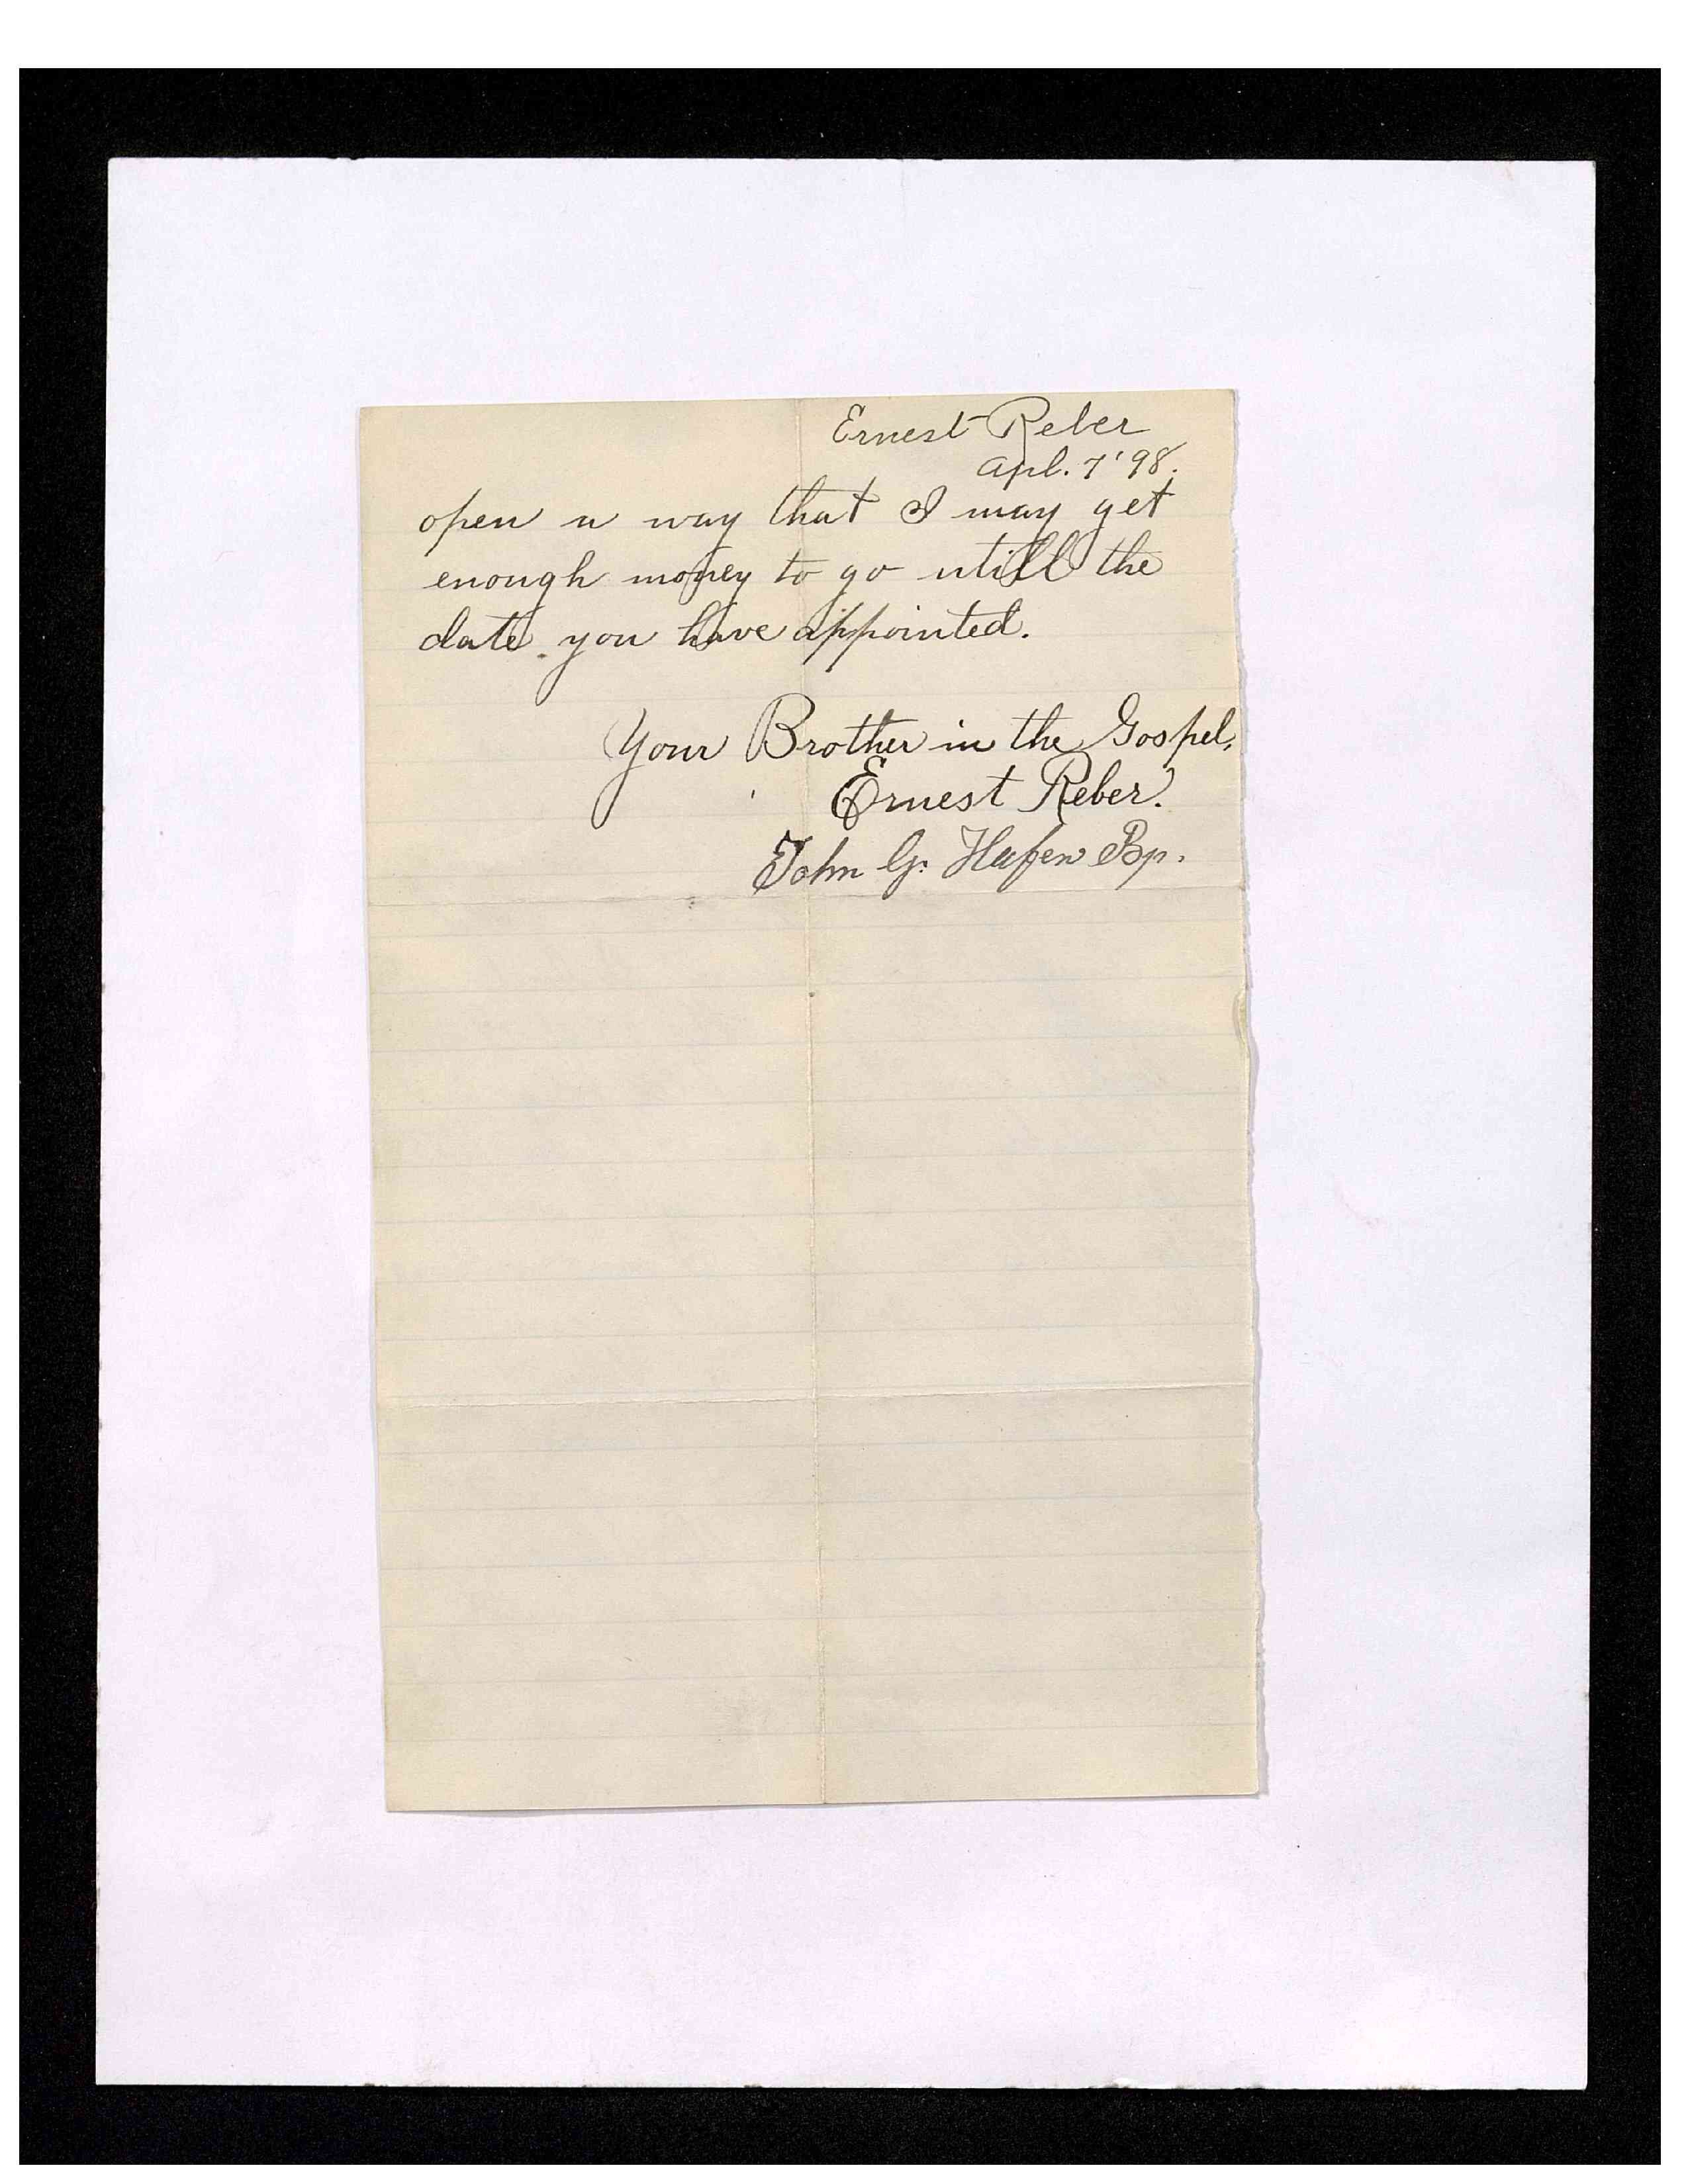 Ernest Reber
Apl. 7 '98.
open a way that I may get
enough money to go utill the
date you have appointed.
Your Brother in the Gospel,
Ernest Reber.
John G. Hafen Bp.